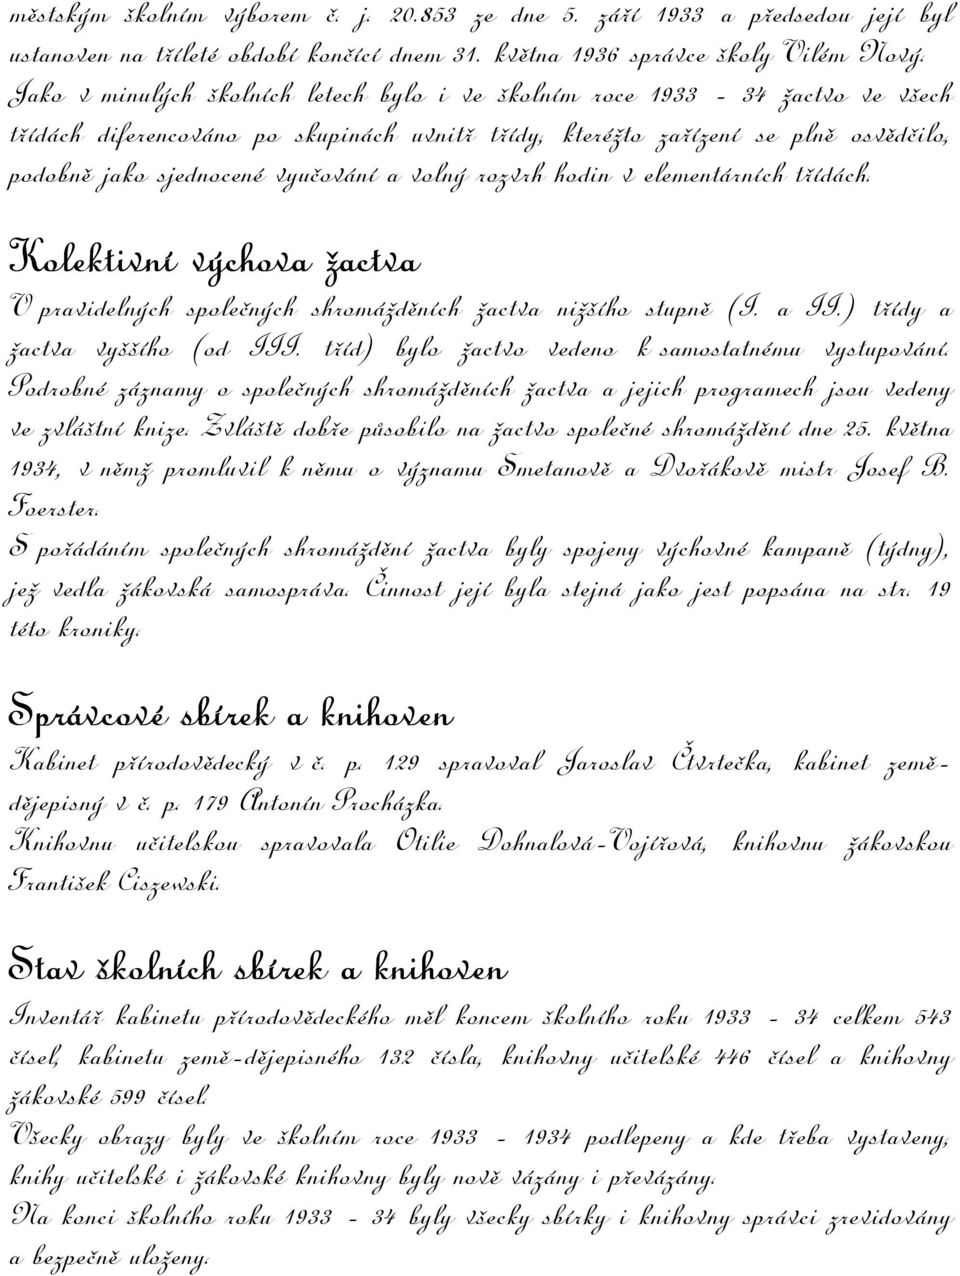 městským školním výborem č. j. 20.853 ze dne 5. září 1933 a předsedou její byl
ustanoven na tříleté období končící dnem 31. května 1936 správce školy Vilém Nový.
Jako v minulých školních letech bylo i ve školním roce 1933 - 34 žactvo ve všech
třídách diferencováno po skupinách uvnitř třídy, kteréžto zařízení se plně osvědčilo,
podobně jako sjednocené vyučování a volný rozvrh hodin v elementárních třídách.
Kolektivní výchova žactva
V pravidelných společných shromážděních žactva nižšího stupně (I. a II.) třídy a
žactva vyššího (od III. tříd) bylo žactvo vedeno k samostatnému vystupování.
Podrobné záznamy o společných shromážděních žactva a jejich programech jsou vedeny
ve zvláštní knize. Zvláště dobře působilo na žactvo společné shromáždění dne 25. května
1934, v němž promluvil k němu o významu Smetanově a Dvořákově mistr Josef B.
Foerster.
S pořádáním společných shromáždění žactva byly spojeny výchovné kampaně (týdny),
jež vedla žákovská samospráva. Činnost její byla stejná jako jest popsána na str. 19
této kroniky.
Správcové sbírek a knihoven
Kabinet přírodovědecký v č. p. 129 spravoval Jaroslav Čtvrtečka, kabinet země-
dějepisný v č. p. 179 Antonín Procházka.
Knihovnu učitelskou spravovala Otilie Dohnalová-Vojířová, knihovnu žákovskou
František Ciszewski.
Stav školních sbírek a knihoven
Inventář kabinetu přírodovědeckého měl koncem školního roku 1933 - 34 celkem 543
čísel, kabinetu země-dějepisného 132 čísla, knihovny učitelské 446 čísel a knihovny
žákovské 599 čísel.
Všecky obrazy byly ve školním roce 1933 - 1934 podlepeny a kde třeba vystaveny,
knihy učitelské i žákovské knihovny byly nově vázány i převázány.
Na konci školního roku 1933 - 34 byly všecky sbírky i knihovny správci zrevidovány
a bezpečně uloženy.